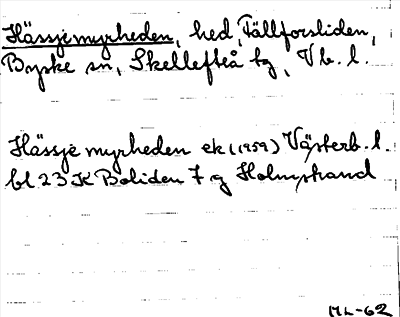 Hässjemyrheden, hed, Fällforsliden,
Byske sn, Skellefteå tg, Vb. l.
Hässjemyrheden ek (1959) Västerb. l.
bl 23 K Boliden 7 g Holmstrand
ML-62